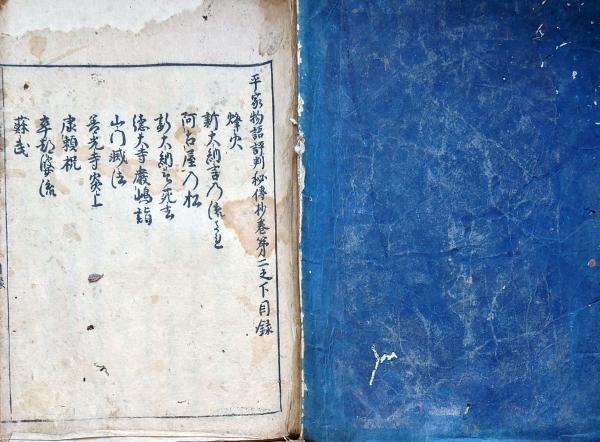 平家物語評判秘傳抄巻第二之下目録
烽火
新大納言乃流され
阿古屋乃松
新大納言死去
德大寺嚴嶋詣
山門滅法
善光寺炎上
康頼祝
卒都婆流
蘇武
目録